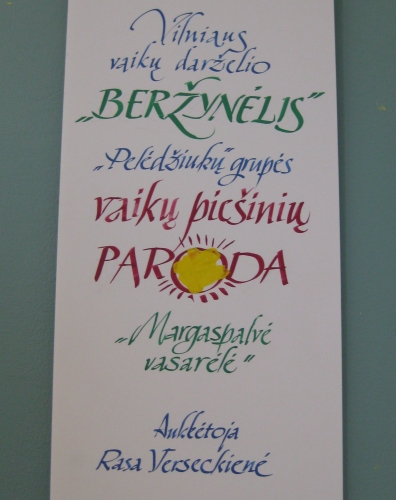 Vilniaus
vaikų darželio
„BERŽYNĖLIS"
„Pelėdžiukų" grupės
vaikų piešinių
PARODA
„Margaspalvė
vasarėlė"
Auklėtoja
Rasa Verseckienė